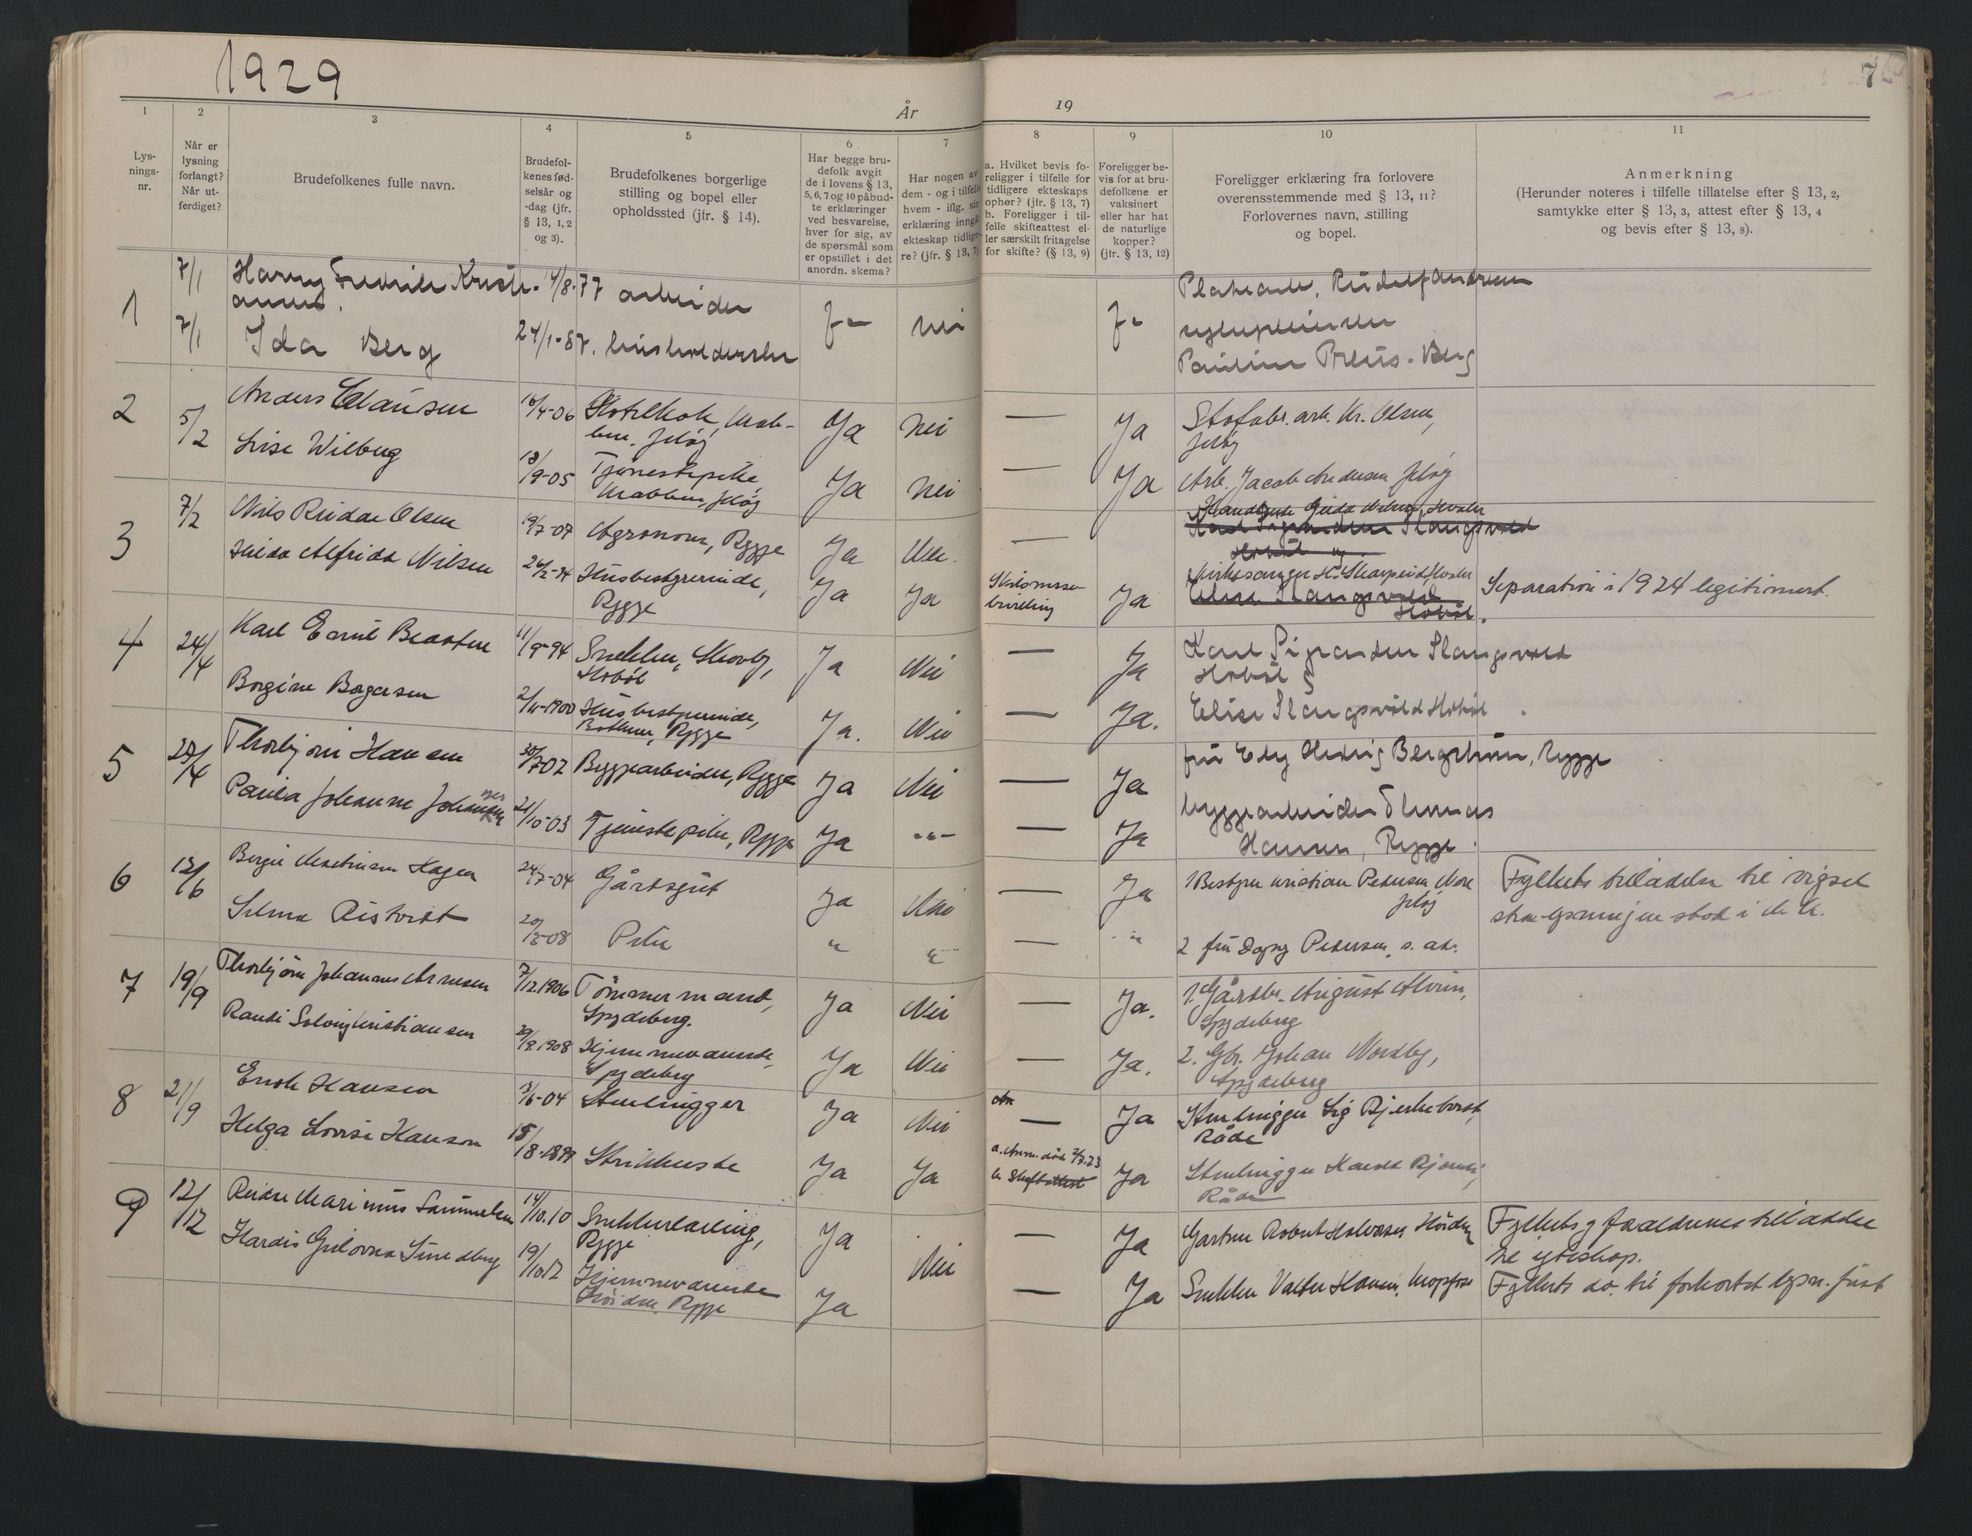 1929
År
19
7
1
2
3
4
5
6
7
8
9
10
11
Lys-
nings-
nr.
Når er
lysning
forlangt?
Når ut-
ferdiget?
Brudefolkenes fulle navn.
Brudefol-
kenes fød-
selsår og
-dag (jfr.
§ 13, 1, 2
og 3).
Brudefolkenes borgerlige
stilling og bopel eller
opholdssted (jfr. § 14).
Har begge bru-
defolk avgit
de i lovens § 13,
5, 6, 7 og 10 påbud-
te erklæringer
ved besvarelse,
hver for sig, av
de spørsmål som
er opstillet i det
anordn. skema?
Har nogen av
dem - og i tilfelle
hvem - iflg. sin
erklæring inngått
ekteskap tidlige-
re? (jfr. § 13, 7)
a. Hvilket bevis fo-
religger i tilfelle for
tidligere ekteskaps
ophør? (jfr. § 13, 7)
b. Foreligger i til-
felle skifteattest el-
ler særskilt fritagelse
for skifte? (§ 13, 9)
Foreligger be-
vis for at bru-
defolkene er
vaksinert
eller har hat
de naturlige
kopper?
(jfr. § 13, 12)
Foreligger erklæring fra forlovere
overensstemmende med § 13, 11?
Forlovernes navn, stilling
og bopel.
Anmerkning
(Herunder noteres i tilfelle tillatelse efter § 13, 2,
samtykke efter § 13, 3, attest efter § 13, 4
og bevis efter § 13, 8).
1
7/1
Harry Fredrik Kristi-
ansen.
4/8-77
arbeider
Ja
nei
Ja
Rudolf Andresen
7/1
Ida Berg
24/1-87.
husholderske
Berg
2
5/2
Anders Clausen
16/4-06
Hotelkok,
Jeløy
Ja
Nei
—
Ja
Stofabr. arb. Kr. Olsen,
Jeløy
Lise Wilberg
13/9-05
Tjenestepike
Jeløy
Ja
Nei
—
Ja
Arb. Jacob Andersen Jeløy
3
7/2
Nils Reidar Olsen
19/7-07
Agronom, Rygge
Ja
Nei.
—
Hilda Alfrida Nilsen
26/2-94
Husbestyrerinde,
Rygge
Ja
Ja
Skilsmisse
bevilling
Ja
Elise Slangsvold
Hobøl.
Separation i 1924 legitimert.
4
24/4
Karl Emil Braaten
11/9-94
Snekker, Skovby,
Hobøl
Ja
Nei
—
Ja
Karl Sigvardsen Slangsvold
Hobøl
Borgine Borgersen
2/11-1900
Husbestyrerinde,
Rygge
Ja.
Nei
—
Ja.
Elise Slangsvold Hobøl
5
20/4
Thorbjørn Hansen
30/7 02
Byggearbeider, Rygge
Ja
Nei
—
Ja
fru Edy Hedvig Bergstrøm, Rygge
Paula Johanne Johansen
21/10-03
Tjenestepike, Rygge
Ja
-"-
—
Ja
byggearbeider Thomas
Hansen, Rygge.
6
13/6
Birger Martinsen Hagen
24/7-04
Gårdsgut
Ja
Nei
—
Ja
1 Bestyrer Kristian Pedersen
Jeløy
Fylkets tilladelse til vigsel
Selma Ristvedt
20/3-08
Pike
"
"
—
"
2 fru Dagny Pedersen, s. ad.
7
19/9
Thorbjørn Johannes Arnesen
7/12.1906
Tømmermand,
Spydeberg.
Ja
Nei
—
Ja.
1. Gårdbr. August
Spydeberg
Randi Solveig Kristiansen
29/9.1908
Hjemmeværende,
Spydeberg
Ja
Nei
—
Ja.
2. Gbr. Johan Nordby,
Spydeberg
8
21/9
Enok Hansen
3/6-04
Stenhugger
Ja
Nei
—
Ja
Stenhugger Sig Bjerkebæk,
Råde
Helga Lovise Hanson
15/8-1899
Strikkerske
Ja
Ja
b. Skifteattest
Ja
Stenhugger
Råde
9
12/12
Reidar Marinius Samuelsen
14/10.10
Snekkerlærling,
Rygge
Ja
Nei
—
Ja
Gartner Robert Halvorsen, Høiden
Fylkets og forældrenes tilladelse
til egteskap.
Hardis Gulovna Smedberg
19/10 12
Hjemmeværende
Høiden, Rygge
Ja
—
Ja
Snekker Valter Hansen,
Fylkets do. til forkortet lysn. frist